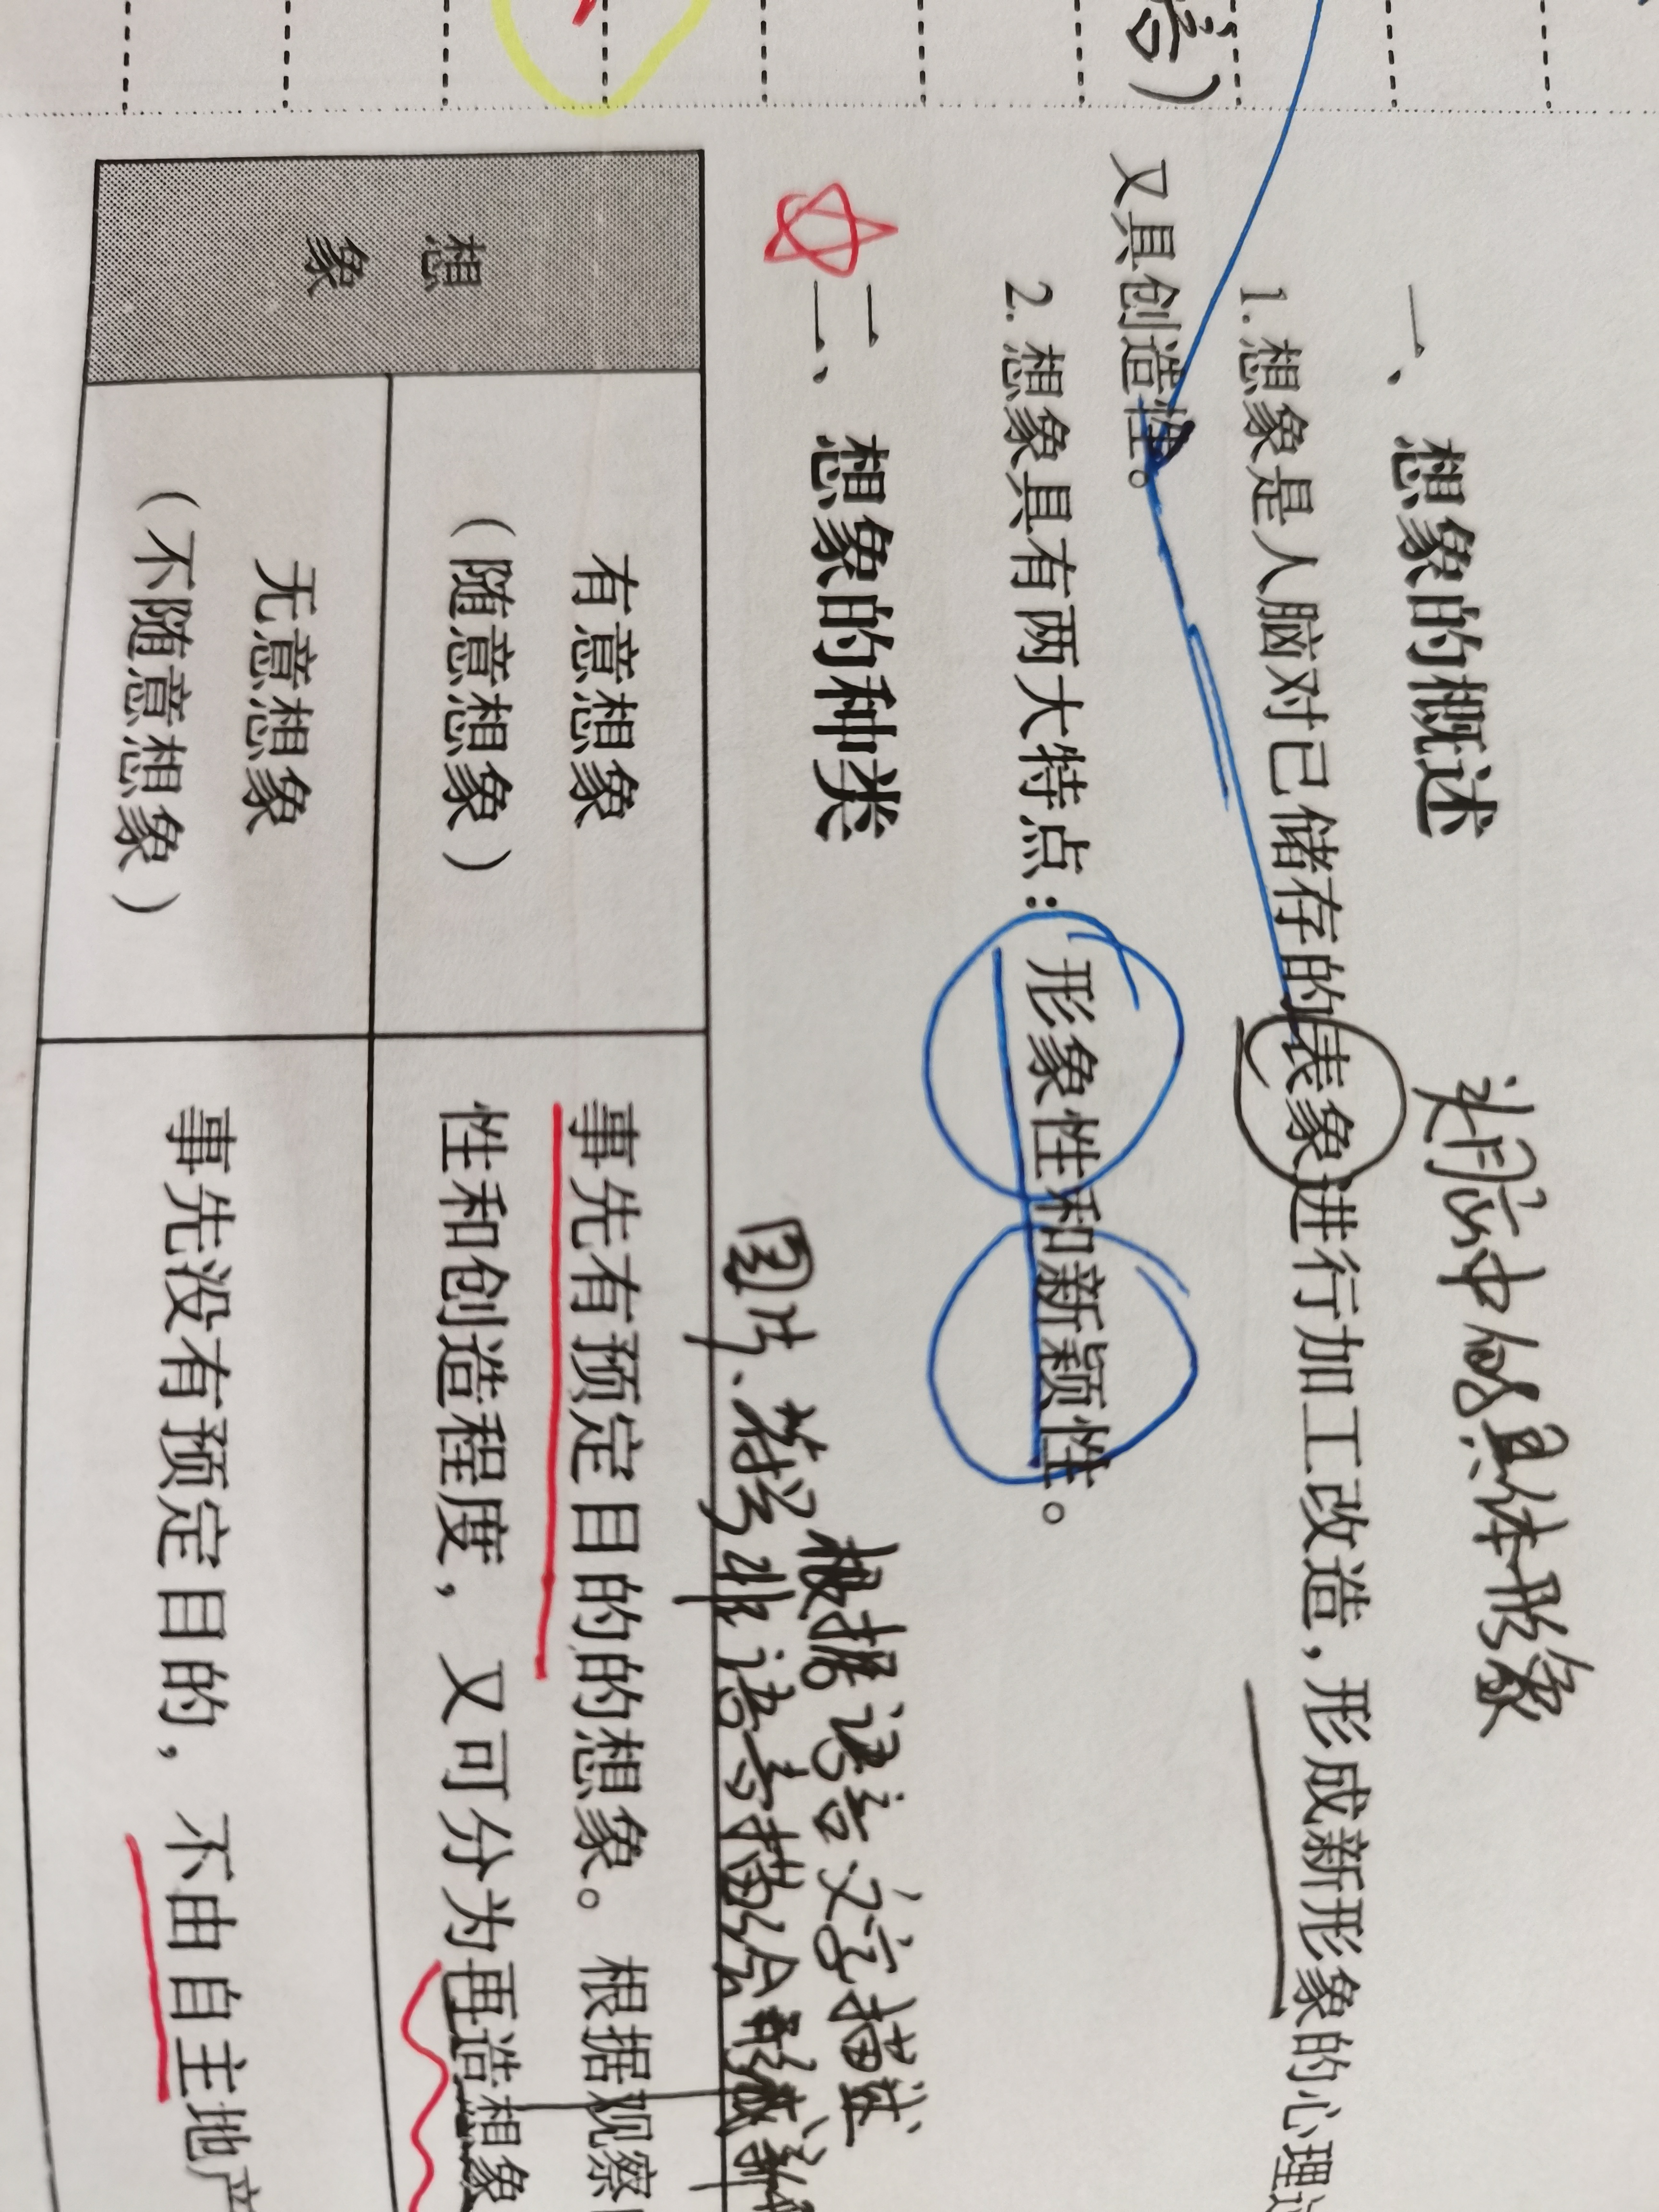 语）
一、想象的概述
头脑中的具体形象
1. 想象是人脑对已储存的表象进行加工改造，形成新形象的心理过
又具创造性。
2. 想象具有两大特点：形象性和新颖性。
二、想象的种类
根据语言文字描述
图片、符号非语言描绘形成新
想
象
有意想象
（随意想象）
事先有预定目的的想象。根据观察
性和创造程度，又可分为再造想象
无意想象
（不随意想象）
事先没有预定目的，不由自主地产